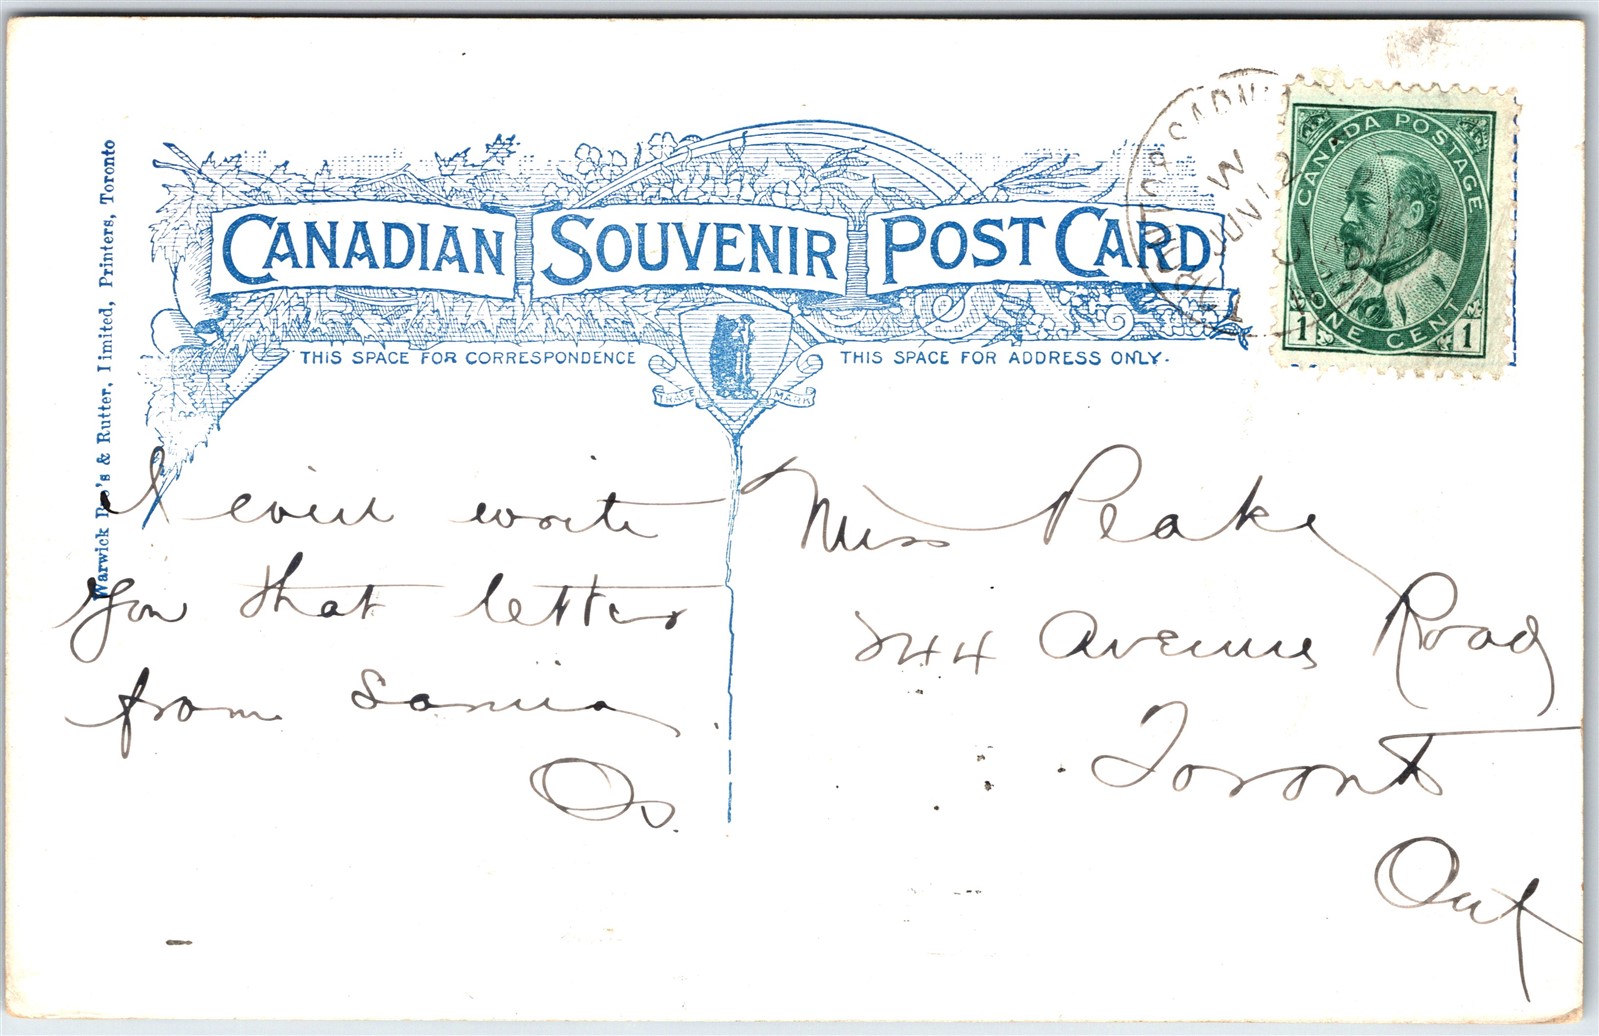 CANADIAN SOUVENIR POST CARD
THIS SPACE FOR CORRESPONDENCE
THIS SPACE FOR ADDRESS ONLY.
TRADE MARK
Warwick Bro's & Rutter, Limited, Printers, Toronto
CANADA POSTAGE
1 ONE CENT 1
JUN 12
I will write
you that letter
from Sarnia.
Miss Peake
244 Avenue Road
Toronto
Ont